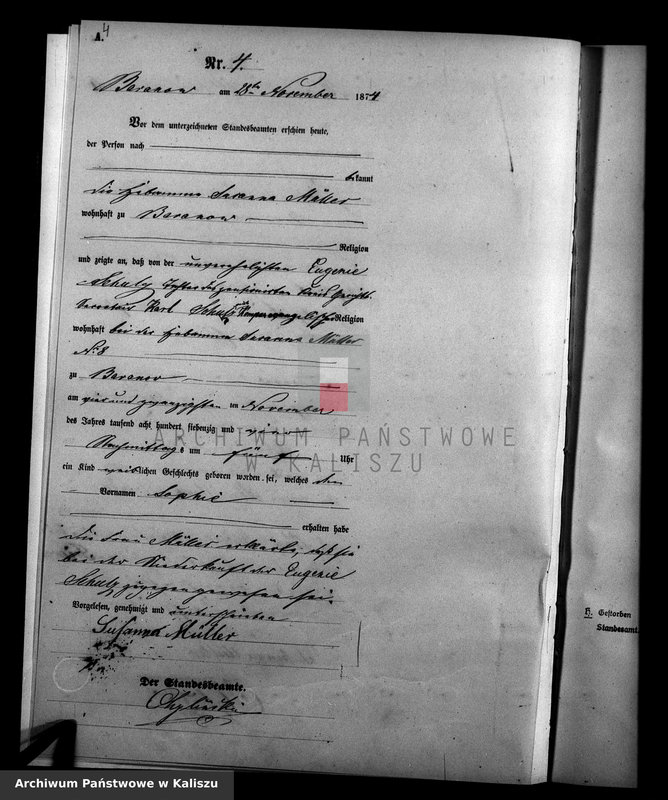 A. 4
Nr. 4.
Baranow am 28ten November 1874
Vor dem unterzeichneten Standesbeamten erschien heute,
der Person nach
bekannt
die Hebamme Susanna Müller
wohnhaft zu Baranow
Religion
und zeigte an, daß von der unverehelichten Eugenie
Schulz Tochter des pensionirten Kreis Gerichts
Secretair Karl Schulz evangelischer Religion
wohnhaft bei der Hebamme Susanna Müller
No 8
zu Baranow
am vier und zwanzigsten ten November
des Jahres tausend acht hundert siebenzig und vier
Nachmittags um fünf Uhr
ein Kind weiblichen Geschlechts geboren worden sei, welches den
Vornamen Sophie
erhalten habe
die Frau Müller erklärte, daß sie
bei der Niederkunft der Eugenie
Schulz zugegen gewesen sei.
Vorgelesen, genehmigt und unterschrieben
Susanna Müller
Der Standesbeamte.
H. Gestorben
Standesamt
ARCHIWUM PAŃSTWOWE
W KALISZU
Archiwum Państwowe w Kaliszu